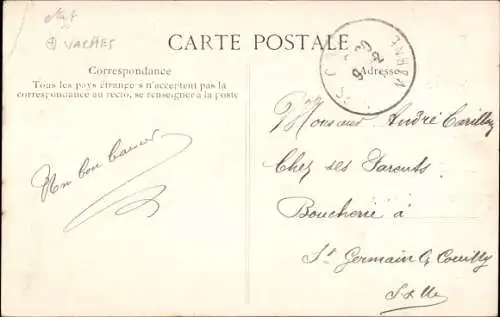 VACHES
CARTE POSTALE
Correspondance
Tous les pays étrangers n'acceptent pas la
correspondance au recto, se renseigner à la poste
Adresse
Un bon baiser
Monsieur André
Chez ses Parents
Boucherie à
St Germain Couilly
S & M